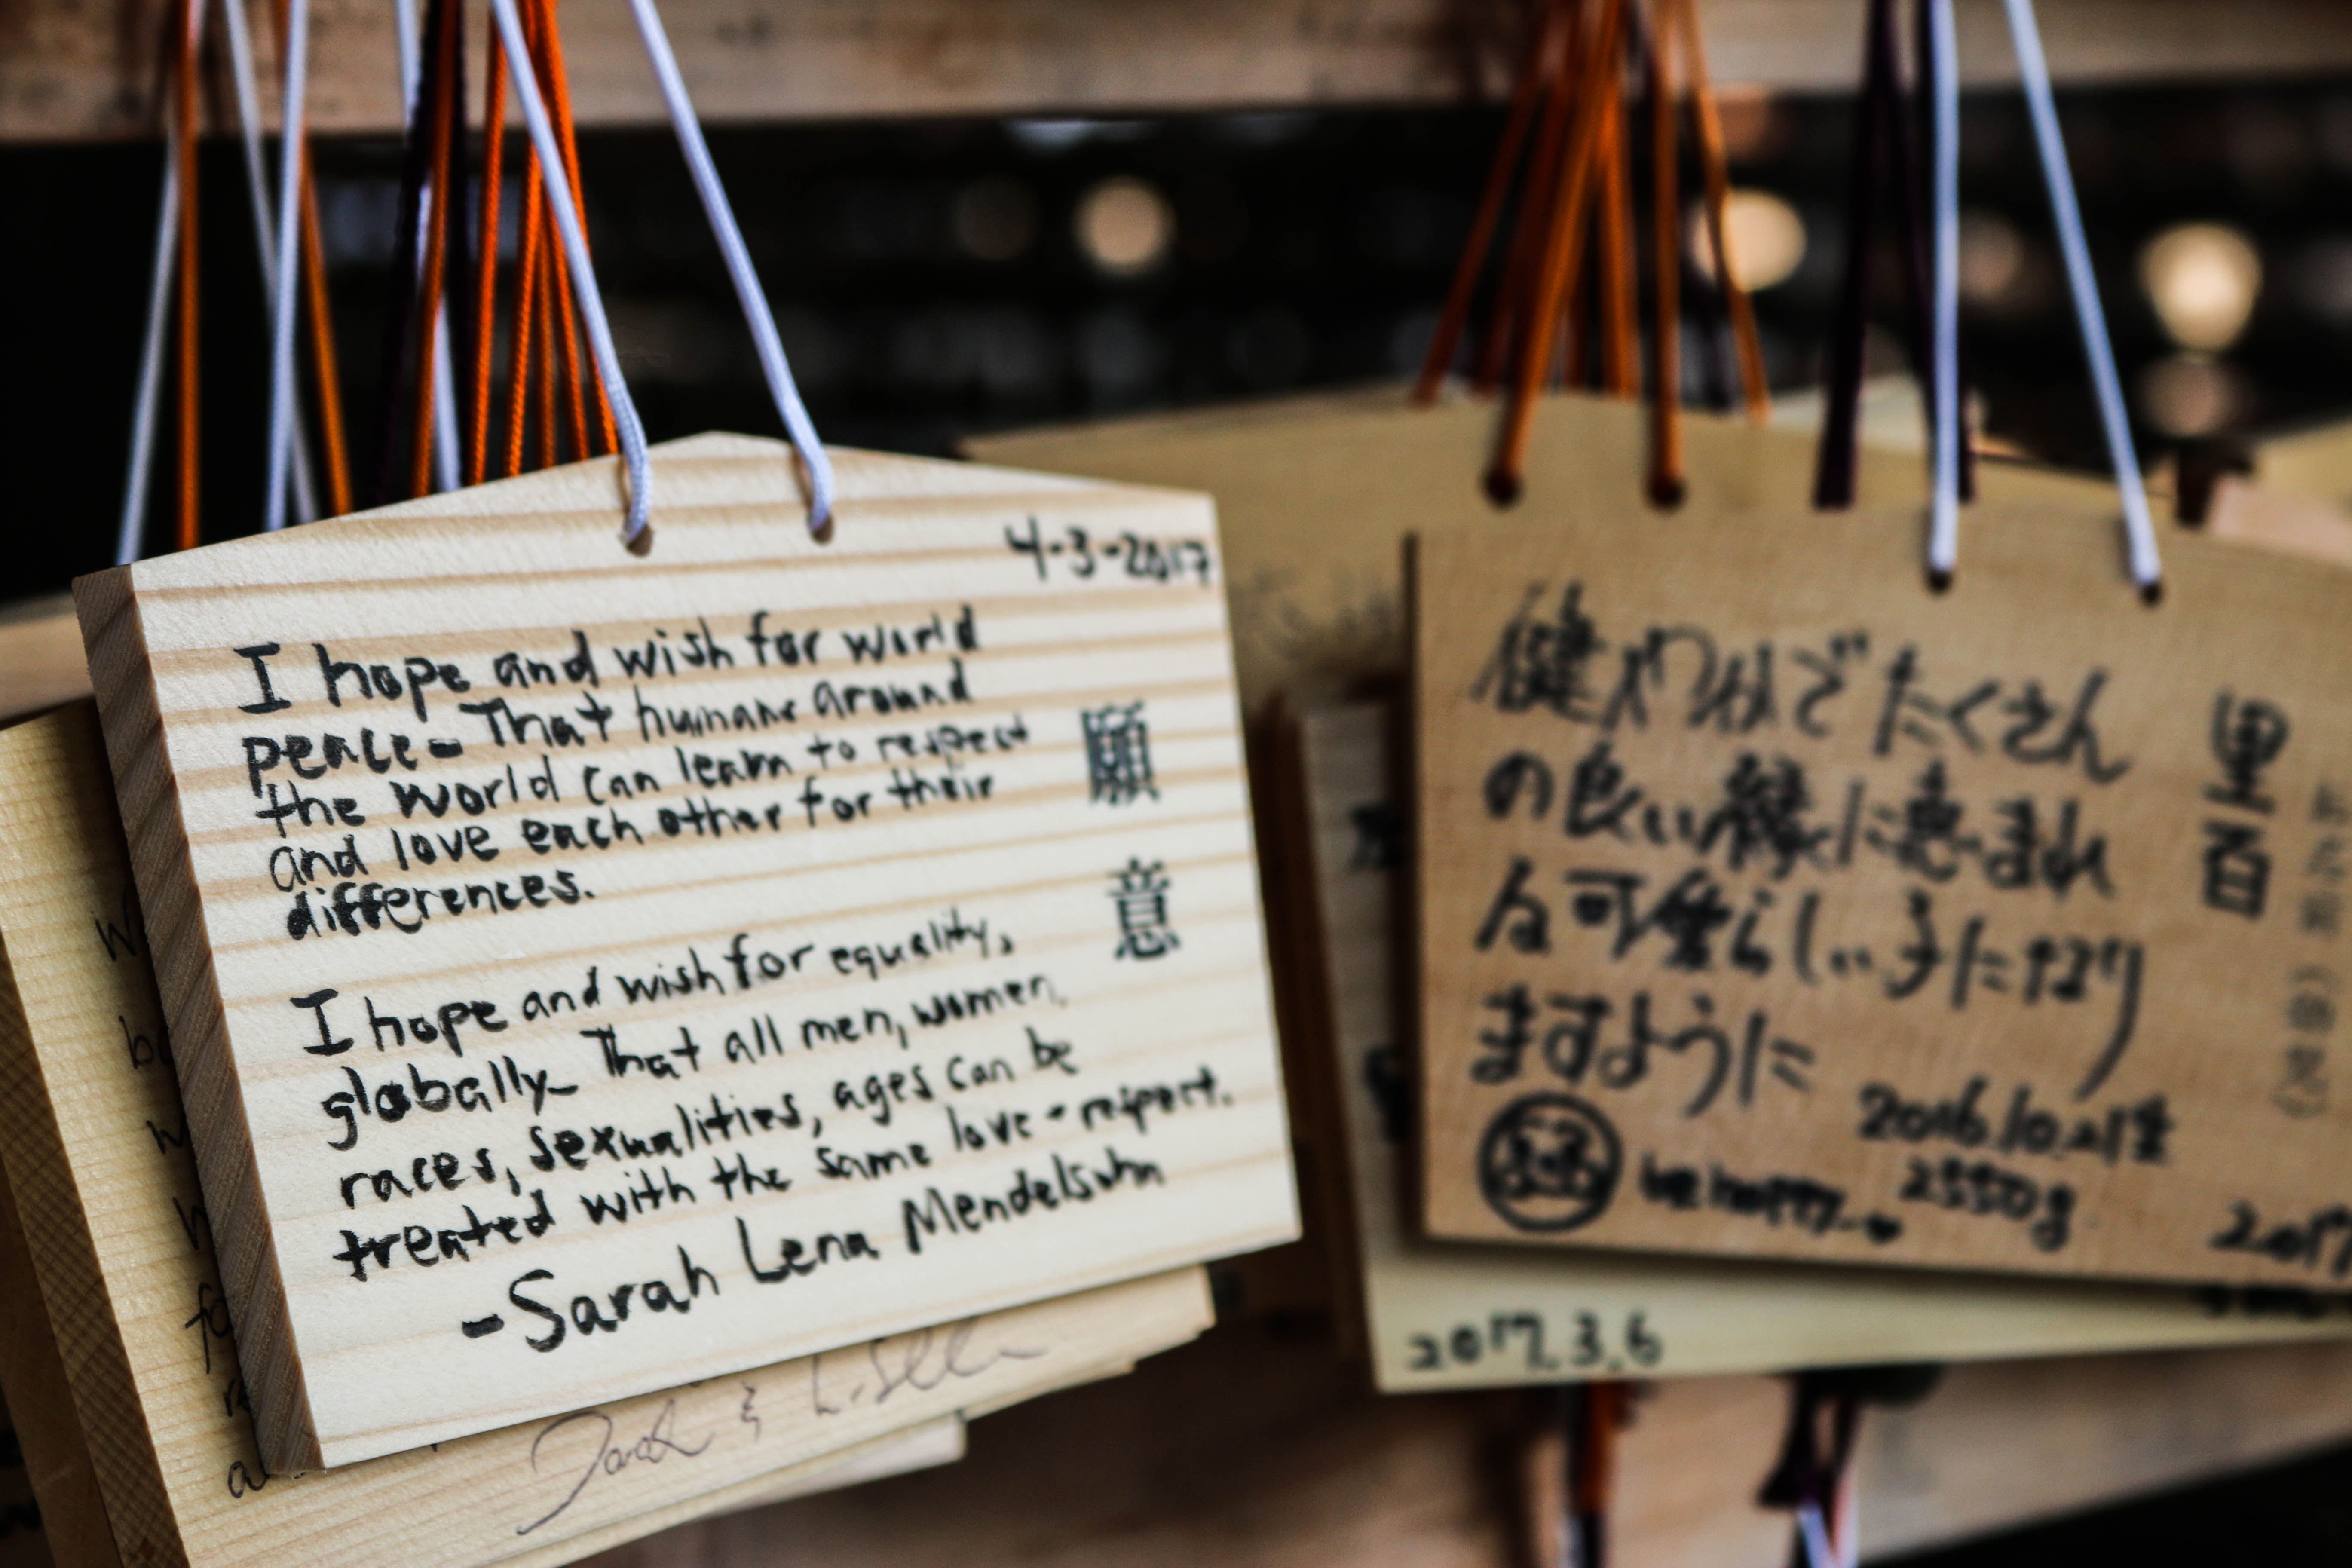 4-3-2017
I hope and wish for world
peace- That humans around
the world can learn to respect
and love each other for their
differences.
I hope and wish for equality,
globally- That all men, women,
races, sexualities, ages can be
treated with the same love + respect.
-Sarah Lena Mendelsohn
願意
健やかでたくさん
の良い縁に恵まれ
る可愛らしい子になり
ますように
2016.10.21生
2550g
be happy
里百
2017
2017.3.6